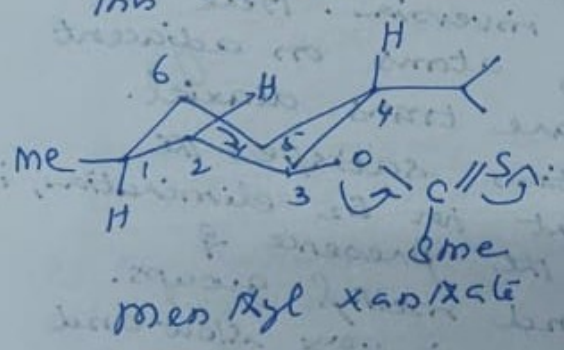 H
6
H
4
Me
1
2
5
3
O
S
H
C
SMe
Menthyl xanthate